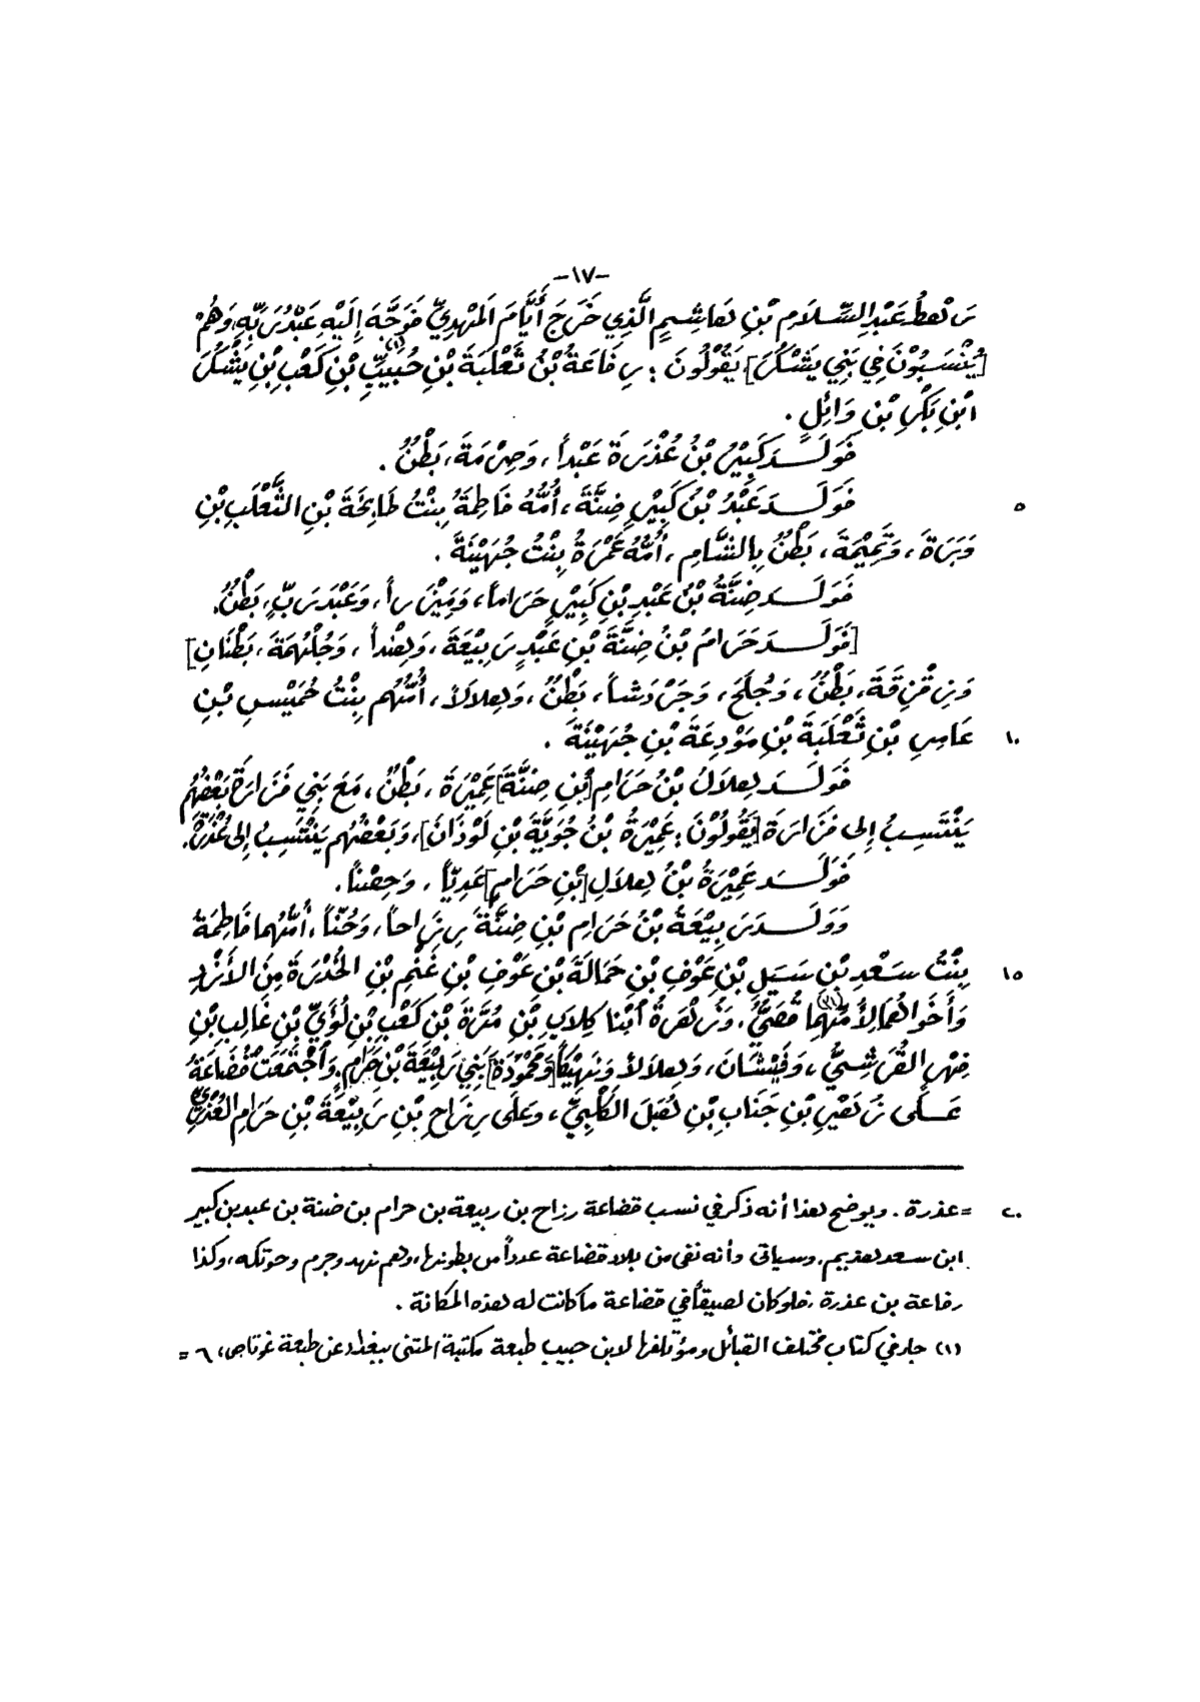 -١٧-
رَهْطُ عَبْدِ السَّلَامِ بْنِ هَاشِمٍ الَّذِي خَرَجَ أَيَّامَ المَهْدِيِّ فَوَجَّهَ إِلَيْهِ عَبْدُ رَبِّهِ، وَهُمْ
[يُنْسَبُوْنَ فِي بَنِي يَشْكُرَ] يَقُوْلُونَ : رِفَاعَةُ بْنُ ثَعْلَبَةَ بْنِ حُبَيِّبِ(١) بْنِ كَعْبِ بْنِ يَشْكُرَ
ابْنِ بَكْرِ بْنِ وَائِلٍ .
فَوَلَــدَ كَبِيْرُ بْنُ عُذْرَةَ عَبْداً، وَصِرْمَةَ، بَطْنٌ .
٥ فَوَلَــدَ عَبْدُ بْنُ كَبِيْرٍ ضِنَّةَ، أُمُّهُ فَاطِمَةُ بِنْتُ طَابِخَةَ بْنِ الثَّعْلَبِ بْنِ
وَبَرَةَ، وَتَمِيْمَةَ، بَطْنٌ بِالشَّامِ، أُمُّهُ عَمْرَةُ بِنْتُ جُهَيْنَةَ .
فَوَلَــدَ ضِنَّةُ بْنُ عَبْدِ بْنِ كَبِيْرٍ حَرَاماً، وَمِيْزَراً، وَعَبْدَ رَبٍّ، بَطْنٌ.
[فَوَلَــدَ حَرَامُ بْنُ ضِنَّةَ بْنِ عَبْدٍ رَبِيْعَةَ، وَهِنْداً، وَجُلْهُمَةَ، بَطْنَانِ]
وَزِقْزِقَةَ، بَطْنٌ، وَجُلَحَ، وَجَرْدَشاً، بَطْنٌ، وَهِلَالاً، أُمُّهُم بِنْتُ حُمَيْسِ بْنِ
١٠ عَامِرِ بْنِ ثَعْلَبَةَ بْنِ مَوْدِعَةَ بْنِ جُهَيْنَةَ .
فَوَلَــدَ هِلَالُ بْنُ حَرَامِ [بْنِ ضِنَّةَ] عَمِيْرَةَ، بَطْنٌ، مَعَ بَنِي فَزَارَةَ بَعْضُهُم
يَنْتَسِبُ إِلى فَزَارَةَ [يَقُولُونَ : عَمِيْرَةُ بْنُ جُوَيَّةَ بْنِ لَوْذَانَ]، وَبَعْضُهُم يَنْتَسِبُ إِلى عُذْرَةَ.
فَوَلَــدَ عَمِيْرَةُ بْنُ هِلَالِ [بْنِ حَرَامٍ] عَدِيّاً، وَحِصْناً.
وَوَلَــدَ رَبِيْعَةُ بْنُ حَرَامِ بْنِ ضِنَّةَ رِزَاحاً، وَحُنّاً، أُمُّهُمَا فَاطِمَةُ
١٥ بِنْتُ سَعْدِ بْنِ سَيَلِ بْنِ عَوْفِ بْنِ حَمَالَةَ بْنِ عَوْفِ بْنِ غَنْمِ بْنِ الجَدَرَةِ مِنَ الأَزْدِ
وَأَخَوَاهُمَا لِأُمِّهِمَا قُصَيٌّ، وَزُهْرَةُ ابْنَا كِلَابِ بْنِ مُرَّةَ بْنِ كَعْبِ بْنِ لُؤَيِّ بْنِ غَالِبِ بْنِ
فِهْرٍ القُرَشِيُّ، وَفَيْشَانَ، وَهِلَالاً وَنَهِيْكاً [وَمَحْمُوْدَةَ] بَنِي رَبِيْعَةَ بْنِ حَرَامٍ. وَاجْتَمَعَتْ قُضَاعَةُ
عَــلَى زُهَيْرِ بْنِ جَنَابِ بْنِ هُبَلَ الكَلْبِيِّ، وَعَلَى رِزَاحِ بْنِ رَبِيْعَةَ بْنِ حَرَامٍ العُذْرِيِّ
٢٠ = عذرة . ويوضح هذا أنه ذكر في نسب قضاعة رزاح بن ربيعة بن حرام بن ضنة بن عبد بن كبير
ابن سعد هذيم. وسيأتي وأنه نفى من بلاد قضاعة عدداً من بطونها، وهم نهد وجرم وحوتكه، وكذا
رفاعة بن عذرة، فلو كان لصيقاً في قضاعة ما كانت له هذه المكانة .
(١) جاء في كتاب مختلف القبائل ومؤتلفها لابن حبيب طبعة مكتبة المثنى ببغداد عن طبعة غوتا ص، ٦ =